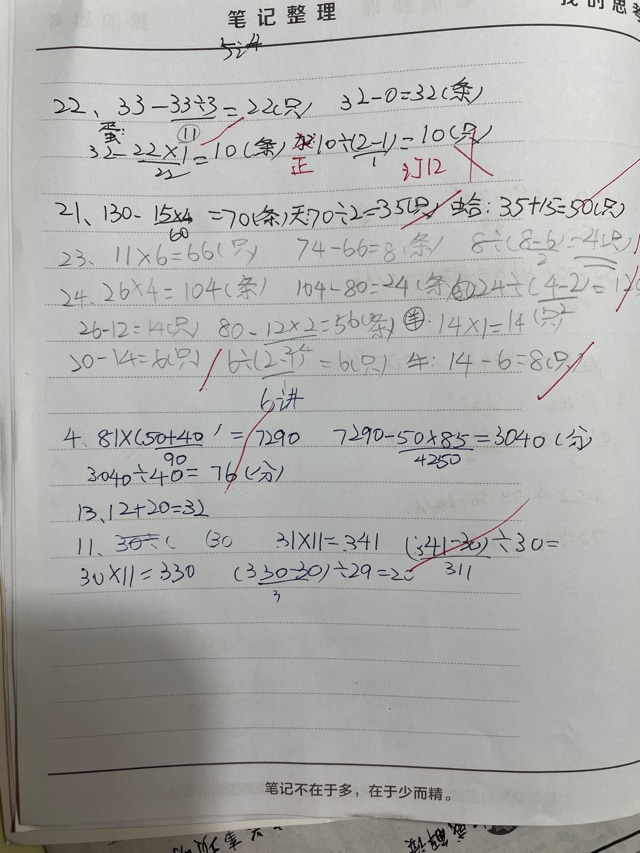 笔记整理
5讲
22、33-33÷3=22(只) 32-0=32(条)
11
32-22×1=10(条) 10÷(2-1)=10(只)
22 正 1 订12
21、130-15×4=70(条) 70÷2=35(只) 蛤:35+15=50(只)
60
23. 11×6=66(只) 74-66=8(条) 8÷(8-6)=4(只)
2
24. 26×4=104(条) 104-80=24(条) 24÷(4-2)=12
26-12=14(只) 80-12×2=56(条) 羊:14×1=14(只)
20-14=6(只) 6÷(2-1)=6(只) 牛:14-6=8(只)
6讲
4. 81×(50+40)=7290 7290-50×85=3040(分)
90 4250
3040÷40=76(分)
13. 12+20=32
11. (30 31×11=341 (341-30)÷30=
311
30×11=330 (330-30)÷29=
3
笔记不在于多，在于少而精。